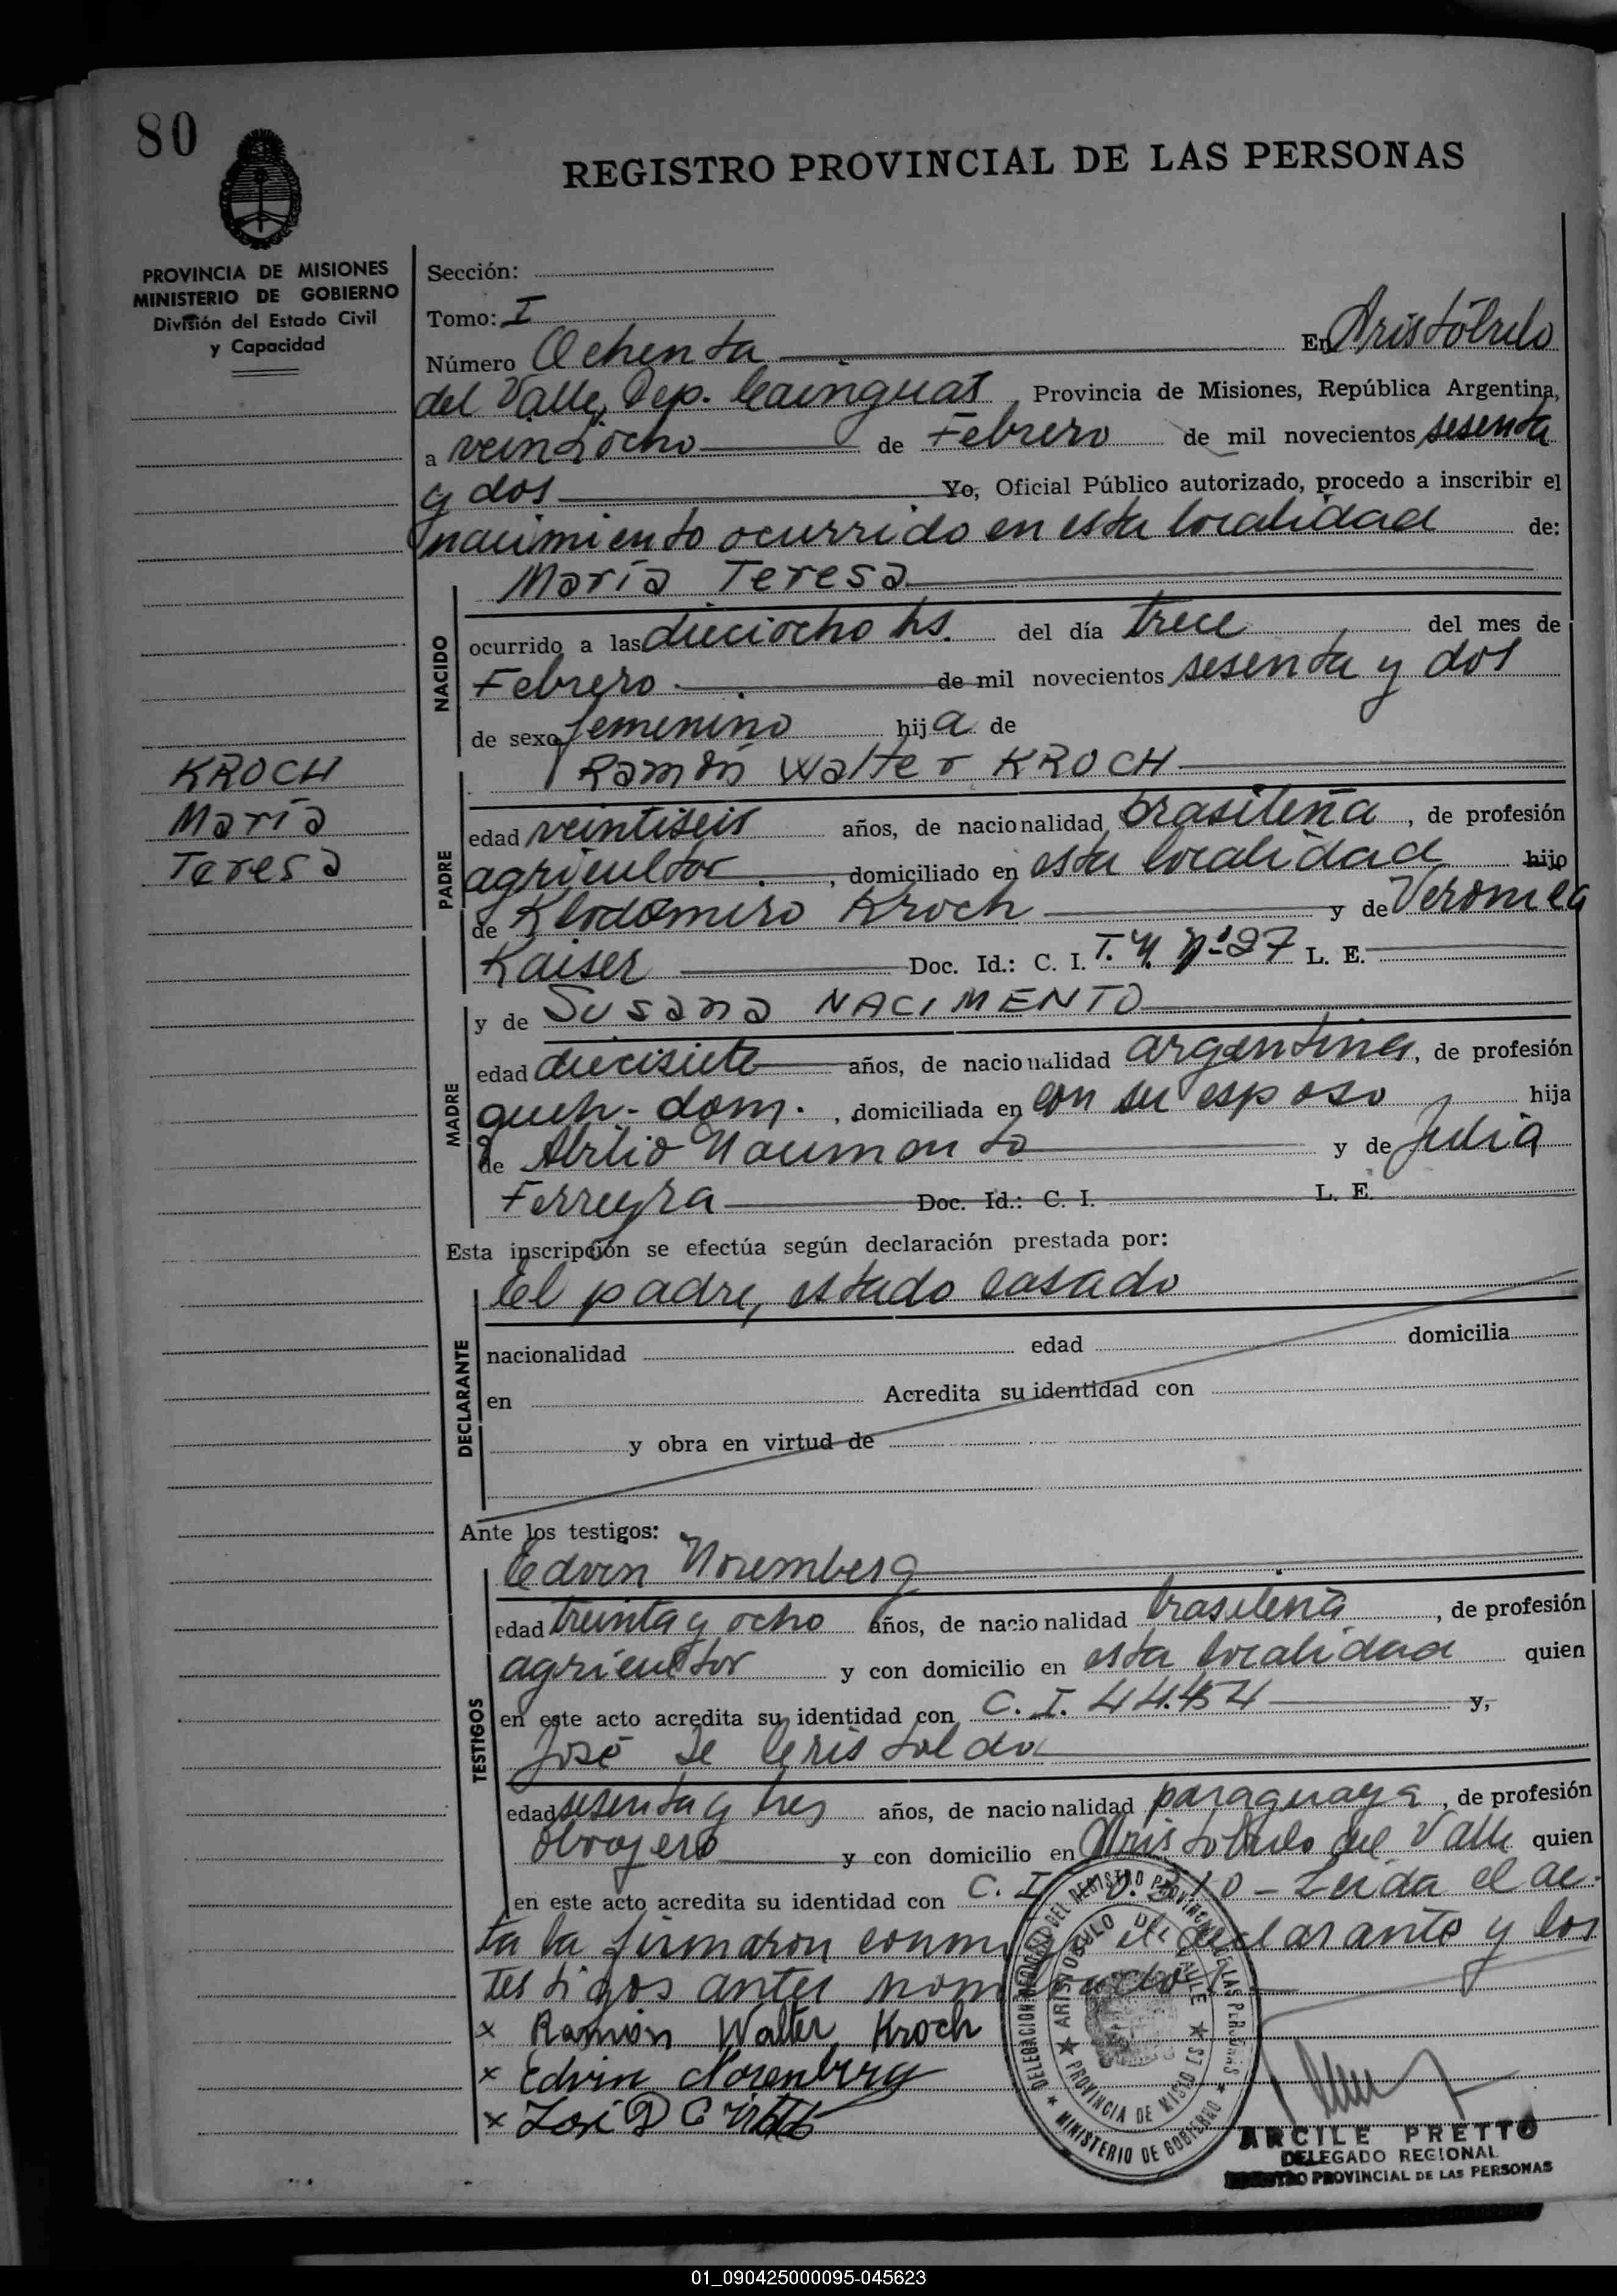 80
REGISTRO PROVINCIAL DE LAS PERSONAS
PROVINCIA DE MISIONES
MINISTERIO DE GOBIERNO
División del Estado Civil
y Capacidad
Sección:
Tomo: I
Número Ochenta En Aristóbulo
del Valle, Dep. Cainguas, Provincia de Misiones, República Argentina,
a veintiocho de Febrero de mil novecientos sesenta
y dos Yo, Oficial Público autorizado, procedo a inscribir el
nacimiento ocurrido en esta localidad de:
María Teresa
NACIDO
ocurrido a las dieciocho hs. del día trece del mes de
Febrero de mil novecientos sesenta y dos
de sexo femenino hija de
KROCH
María
Teresa
Ramón Walter KROCH
PADRE
edad veintiseis años, de nacionalidad brasileña, de profesión
agricultor, domiciliado en esta localidad hijo
de Klodomiro Kroch y de Veronica
Kaiser Doc. Id.: C. I. T. Y. Nº 27 L. E.
MADRE
y de Susana NACIMENTO
edad diecisiete años, de nacionalidad argentina, de profesión
queh. dom., domiciliada en con su esposo hija
de Abilio Nacimento y de Julia
Ferreyra Doc. Id.: C. I. L. E.
Esta inscripción se efectúa según declaración prestada por:
DECLARANTE
El padre, estado casado
nacionalidad edad domicilia
en Acredita su identidad con
y obra en virtud de
Ante los testigos:
TESTIGOS
Edvin Noremberg
edad treinta y ocho años, de nacionalidad brasileña, de profesión
agricultor y con domicilio en esta localidad quien
en este acto acredita su identidad con C. I. 44.454 y,
José de Cristaldo
edad sesenta y tres años, de nacionalidad paraguaya, de profesión
obrajero y con domicilio en Aristóbulo del Valle quien
en este acto acredita su identidad con C. I. - Leida el ac-
ta la firmaron conmigo el declarante y los
testigos antes nombrados
x Ramón Walter Kroch
x Edvin Norenberg
x José D
DELEGACION REGIONAL DEL REGISTRO PROVINCIAL DE LAS PERSONAS
★ MINISTERIO DE GOBIERNO ★
★ ARISTOBULO DEL VALLE ★
PROVINCIA DE MISIONES
ARCILE PRETTO
DELEGADO REGIONAL
REGISTRO PROVINCIAL DE LAS PERSONAS
01_090425000095-045623